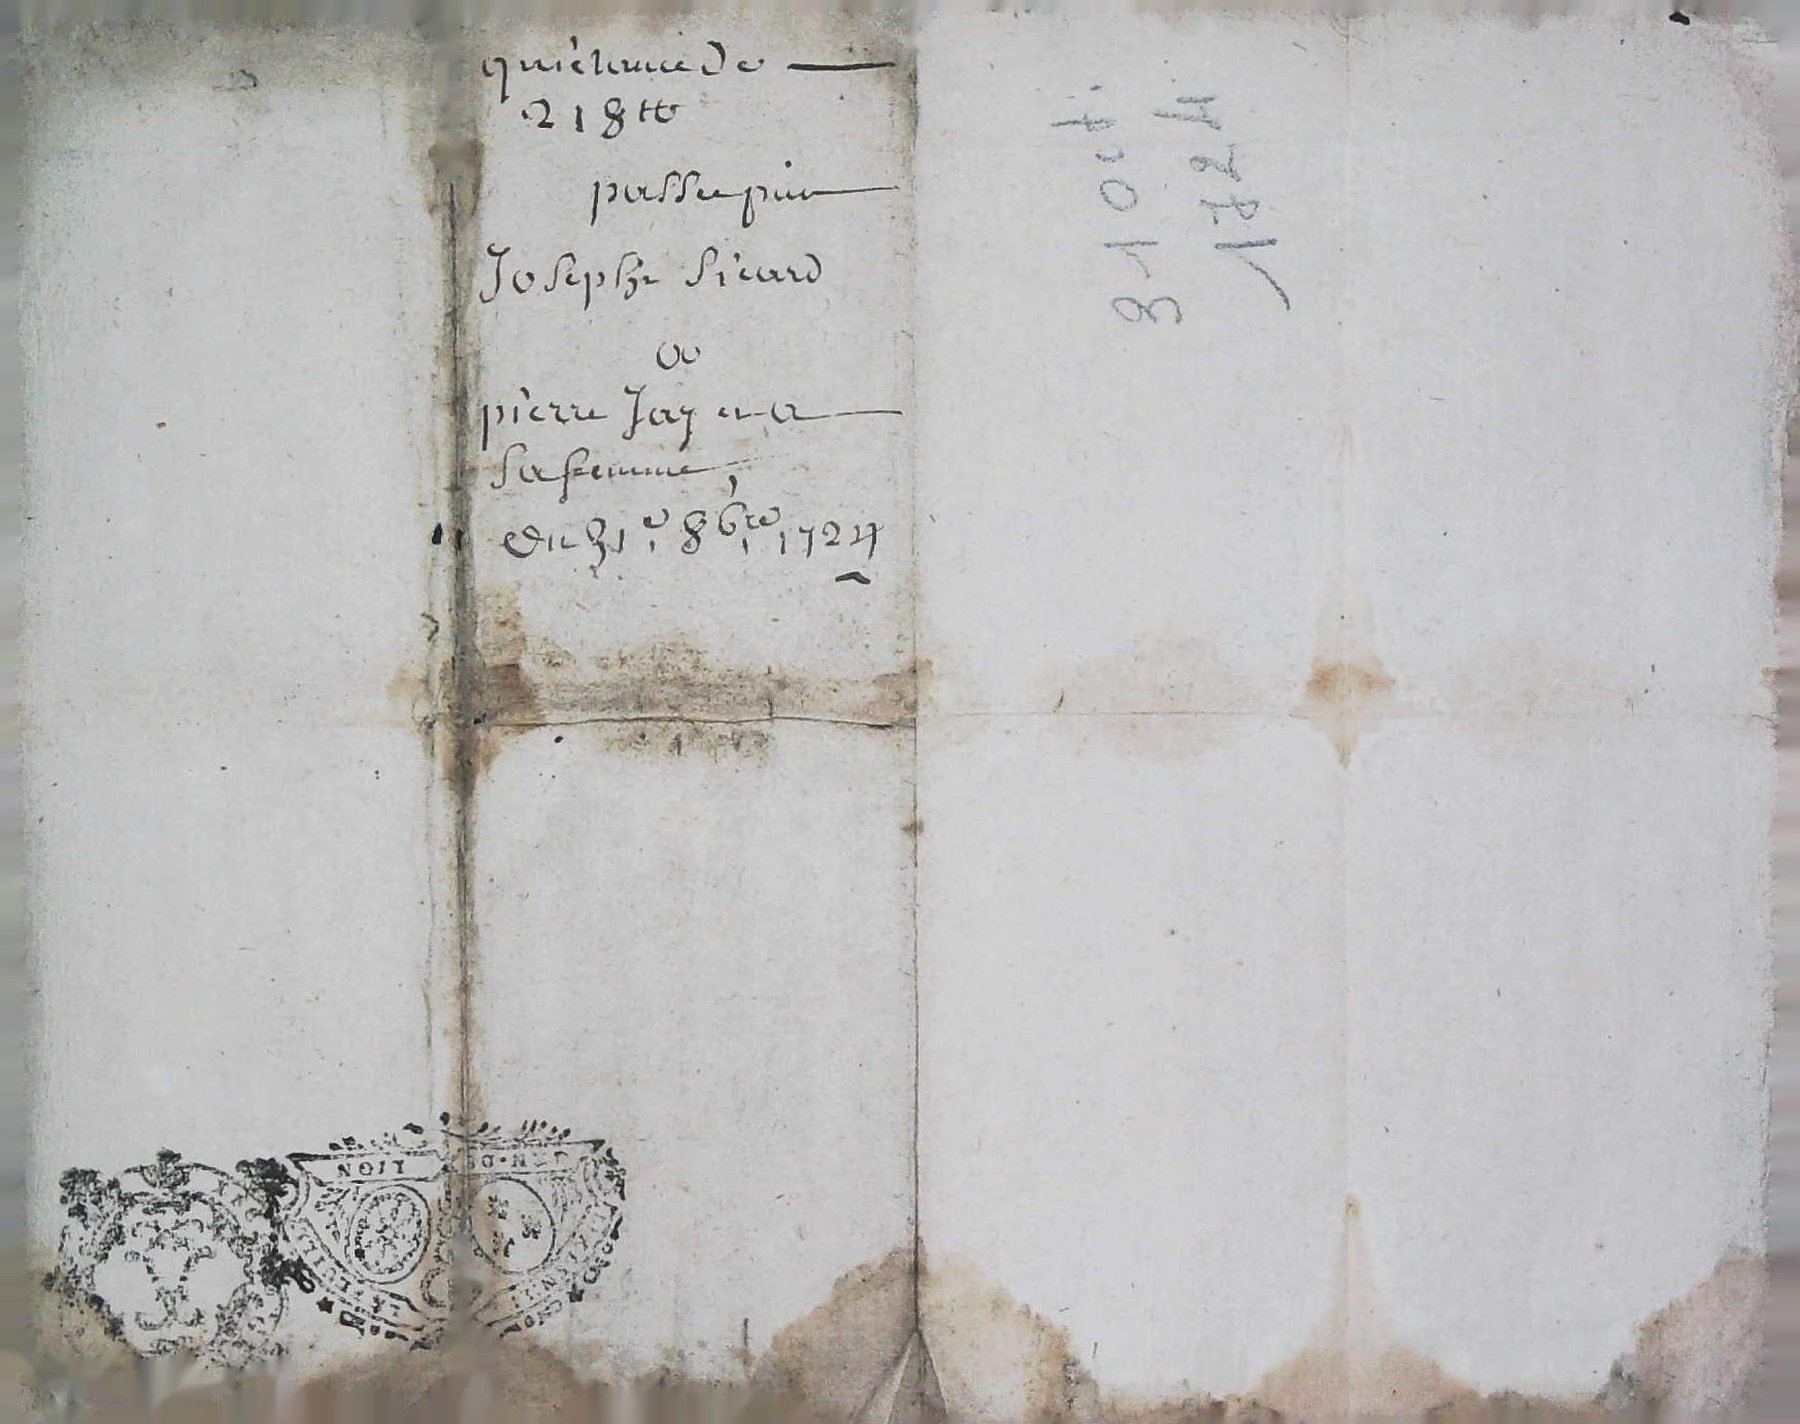 quictance de
218 tt
passee par
Josephe Sicard
a
pierre Jay et a
sa femme,
Du 31e 8bre 1724
31 Oct
1724
GEN · DE LION